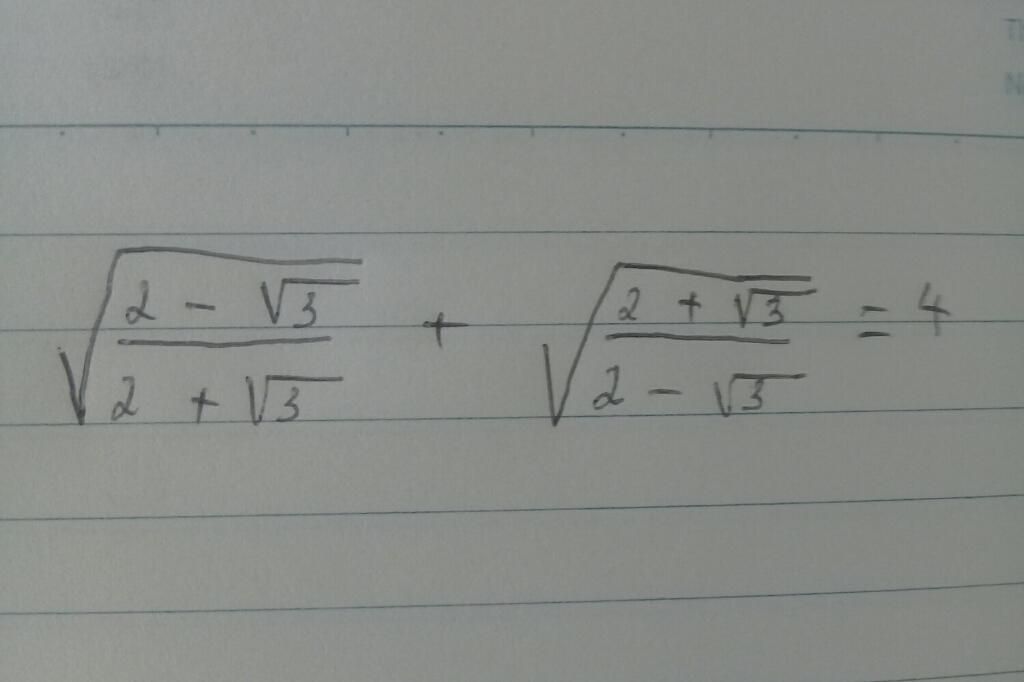 √((2 - √3)/(2 + √3)) + √((2 + √3)/(2 - √3)) = 4